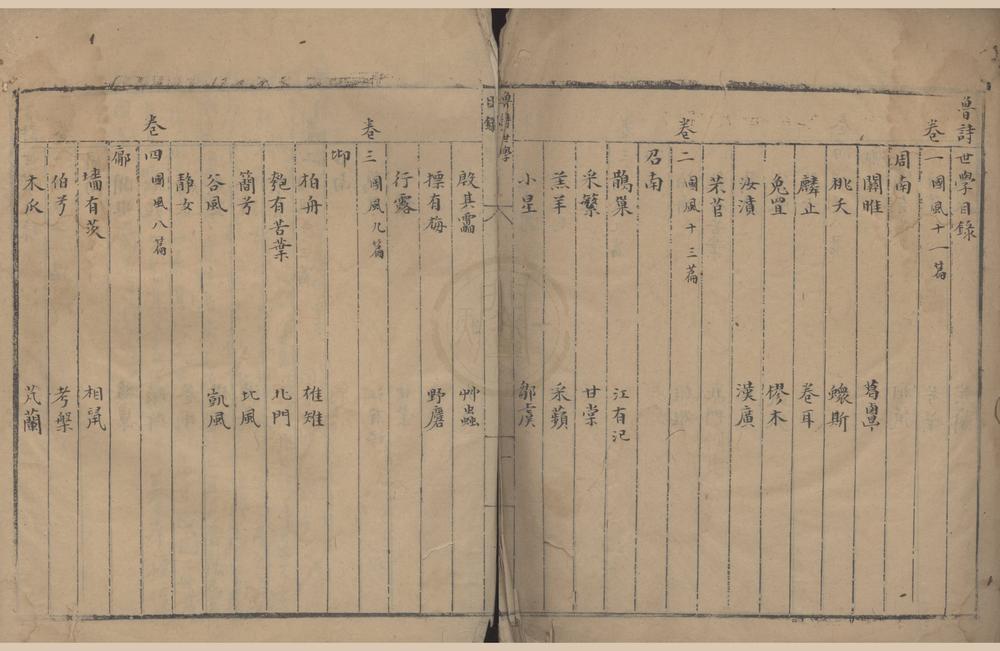 魯詩世學目錄
卷一國風十一篇
周南
關雎 葛覃
桃夭 螽斯
麟止 卷耳
兔罝 樛木
汝濆 漢廣
芣苢
卷二國風十三篇
召南
鵲巢 江有汜
采蘩 甘棠
羔羊 采蘋
小星 騶虞
魯詩世學
目錄
殷其靁 艸蟲
摽有梅 野麕
行露
卷三國風九篇
邶
柏舟 雄雉
匏有苦葉 北門
簡兮 北風
谷風 凱風
靜女
卷四國風八篇
鄘
墻有茨 相鼠
伯兮 考槃
木瓜 芄蘭